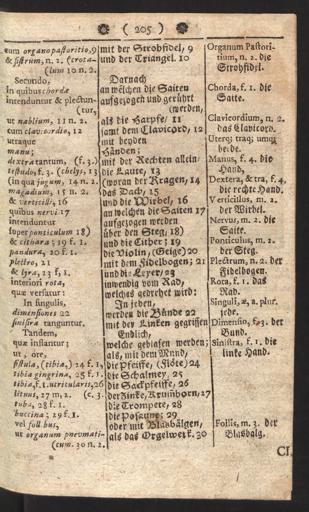 ( 205 )
cum organo pastoritio, 9
& sistrum, n. 2. (crota-
(lum 10 n. 2.
Secundo,
In quibus chordæ
intenduntur & plectun-
(tur,
ut nablium, 11 n. 2.
cum clavicordio, 12
utraque
manu;
dextra tantum, (f. 3.)
testudo, f. 3. (chelys, 13
(in qua jugum, 14 n. 2.
magadium, 15 n. 2.
& verticilli, 16
quibus nervi 17
intenduntur
super ponticulum 18)
& cithara; 19 f. 1.
pandura, 20 f. 1.
plectro, 21
& lyra, 23 f. 1.
interiori rota,
quæ versatur:
In singulis,
dimensiones 22
sinistra tanguntur.
Tandem,
quæ inflantur;
ut, ore,
fistula, (tibia,) 24 f. 1,
tibia gingrina, 25 f. 1.
tibia, f. 1. utricularis, 26
lituus, 27 m. 2. (c. 3.
tuba, 28 f. 1.
buccina; 29 f. 1.
vel foll. bus,
ut organum pnevmati-
(cum. 30 n. 2.
mit der Strohfidel, 9
und der Triangel. 10
Darnach
an welchen die Saiten
aufgezogen und gerührt
(werden,
als die Harpfe/ 11
samt dem Clavicord, 12
mit beyden
Händen;
mit der Rechten allein/
die Laute, 13
(woran der Kragen, 14
das Dach, 15
und die Wirbel, 16
an welchen die Saiten 17
aufgezogen werden
über den Steg, 18)
und die Cither; 19
die Violin, (Geige) 20
mit dem Fidelbogen; 21
und die Leyer, 23
inwendig vom Rad,
welches gedrehet wird:
In jeden,
werden die Bünde 22
mit der Linken gegriffen
Endlich,
welche geblasen werden;
als, mit dem Mund,
die Pfeiffe, (Flöte) 24
die Schalmey, 25
die Sackpfeiffe, 26
der Zinke, Krumhorn, 27
die Trompete, 28
die Posaune; 29
oder mit Blasbälgen,
als das Orgelwerk. 30
Organum Pastori-
tium, n. 2. die
Strohfidel.
Chorda, f. 1. die
Saite.
Clavicordium, n. 2.
das Clavicord.
Uterq; traq; umq;
beyde.
Manus, f. 4. die
Hand,
Dextera, & tra, f. 4.
die rechte Hand.
Verticillus, m. 2.
der Wirbel.
Nervus, m. 2. die
Saite.
Ponticulus, m. 2.
der Steg.
Plectrum, n. 2. der
Fidelbogen.
Rota, f. 1. das
Rad.
Singuli, æ, a. plur.
jede.
Dimensio, f. 3. der
Bund.
Sinistra, f. 1. die
linke Hand.
Follis, m. 3. der
Blasbalg.
CI.